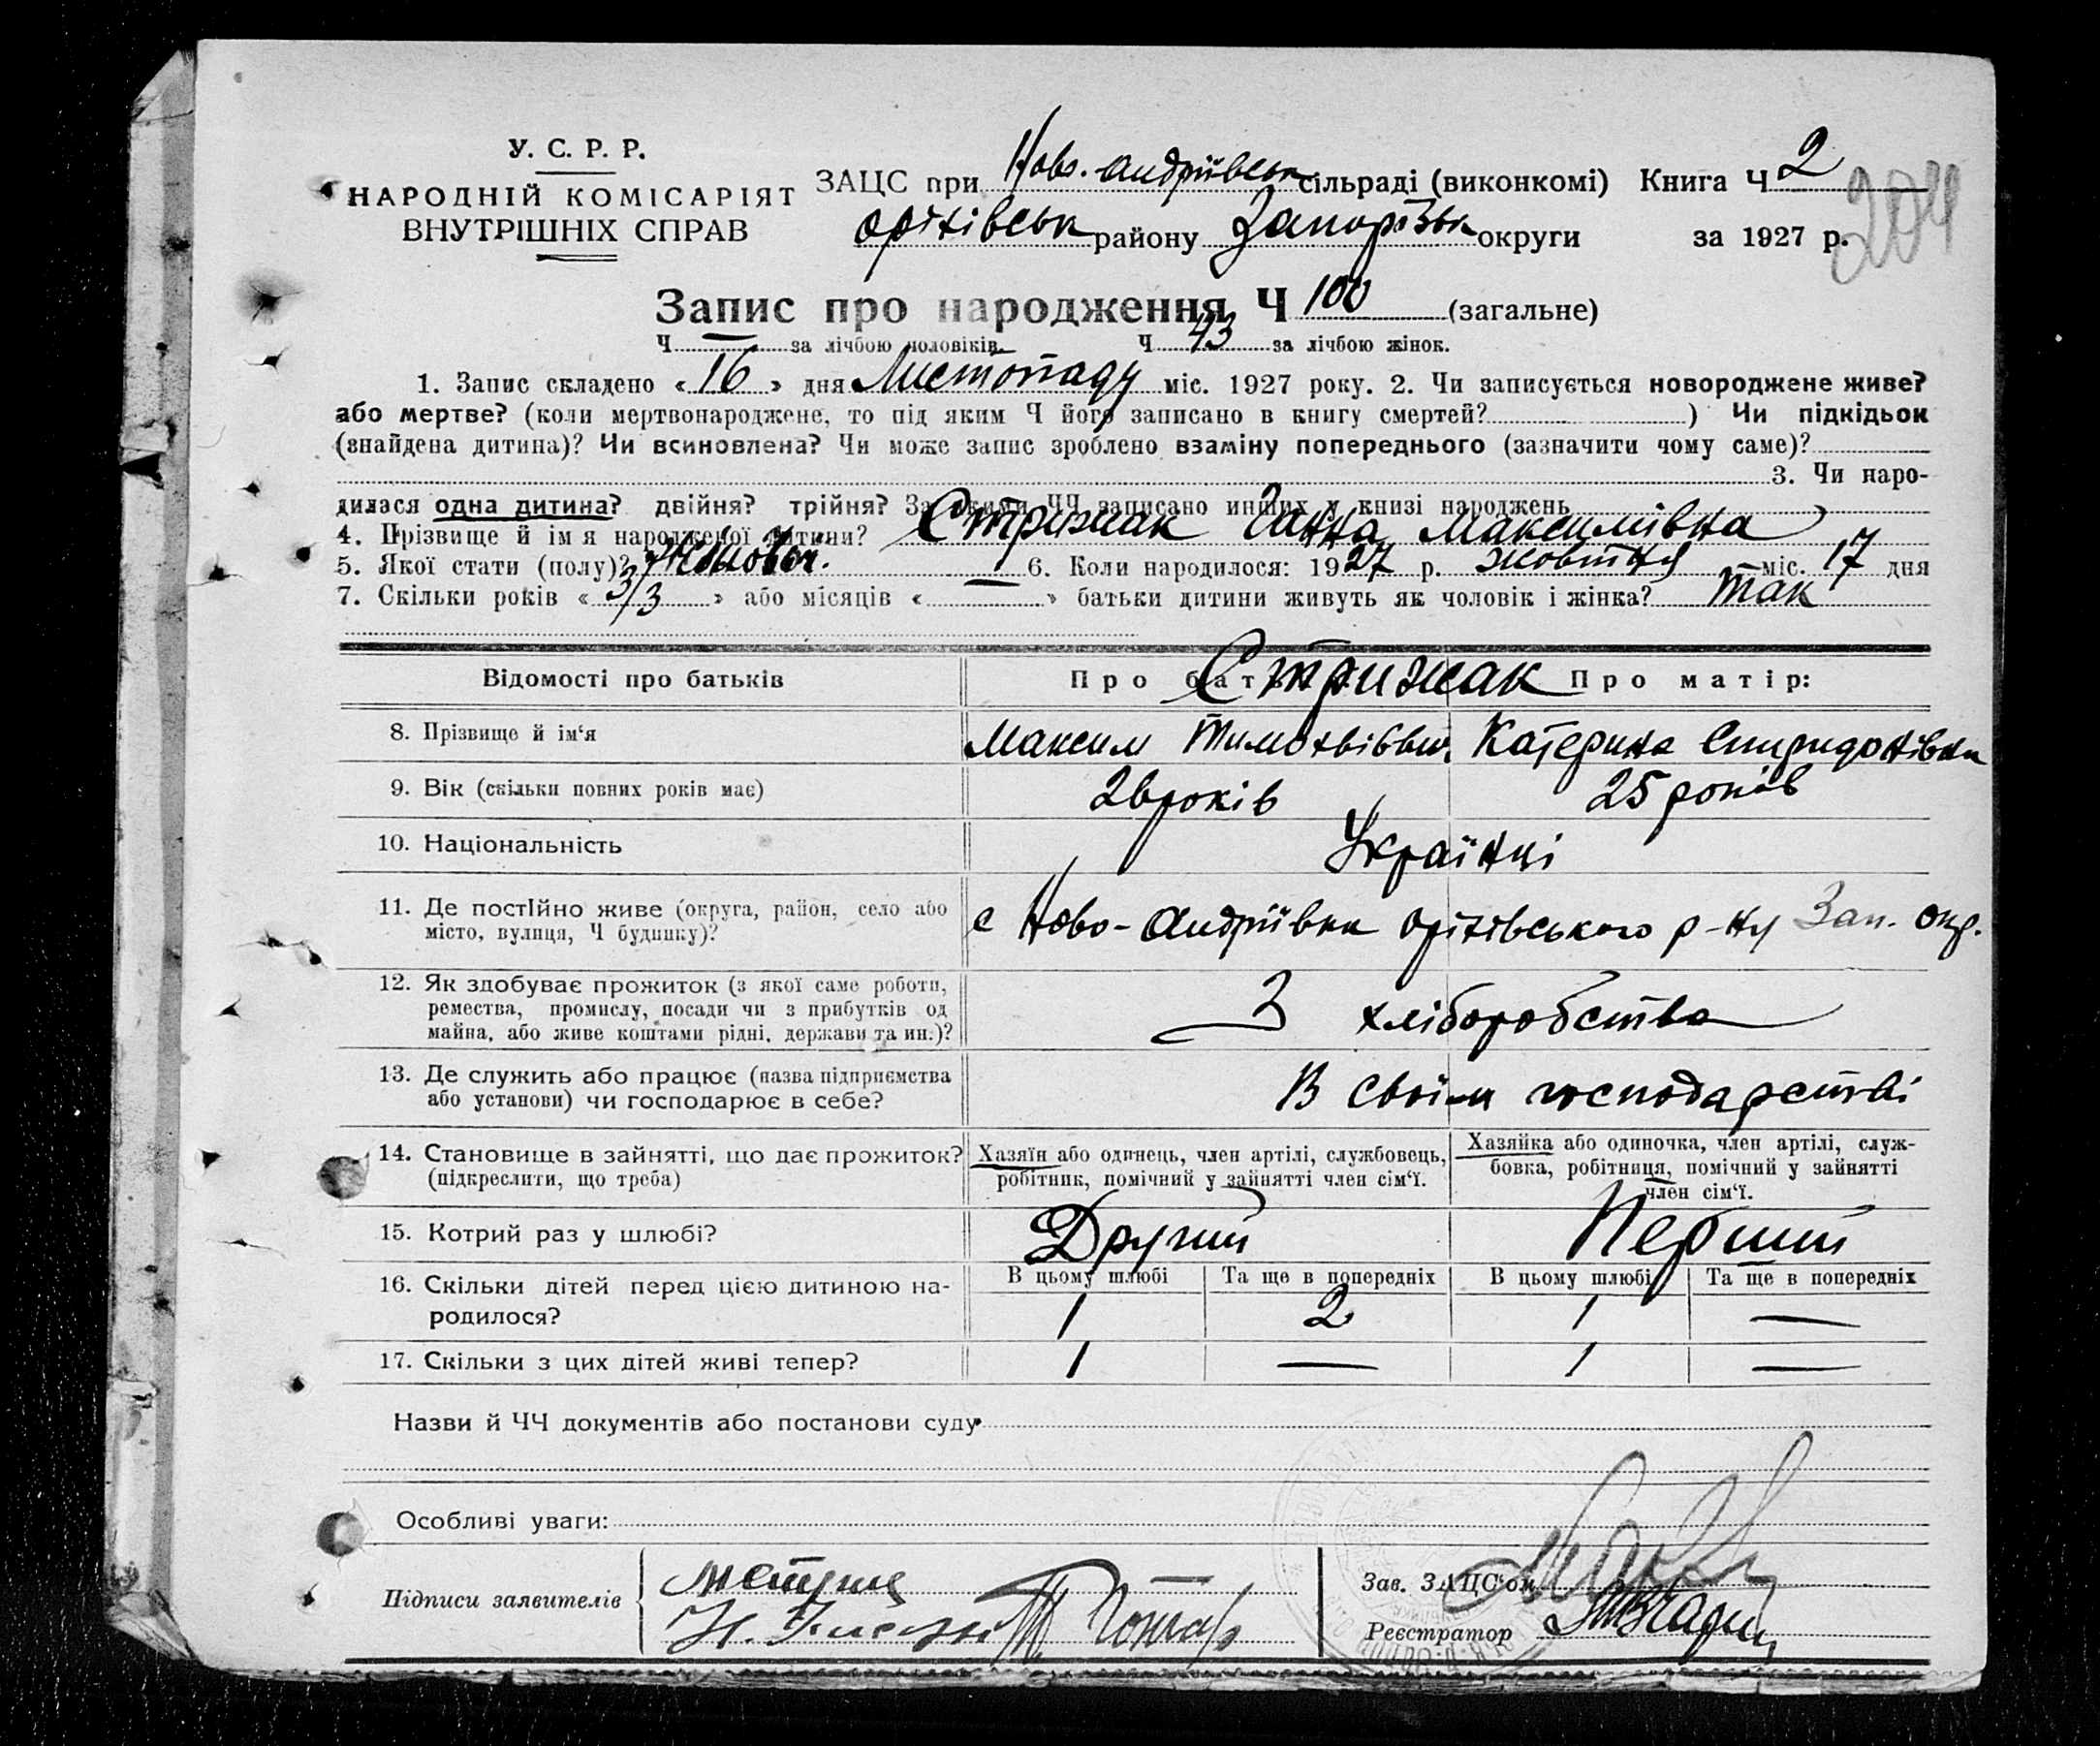 У. С. Р. Р.
НАРОДНІЙ КОМІСАРІЯТ
ВНУТРІШНІХ СПРАВ
ЗАЦС при Ново-Андріївськ сільраді (виконкомі) Книга Ч 2
204
Оріхівськ району Запорізьк округи за 1927 р.
Запис про народження Ч 100 (загальне)
Ч — за лічбою чоловіків. Ч 43 за лічбою жінок.
1. Запис складено « 16 » дня Листопаду міс. 1927 року. 2. Чи записується новороджене живе?
або мертве? (коли мертвонароджене, то під яким Ч його записано в книгу смертей? ) Чи підкідьок
(знайдена дитина)? Чи всиновлена? Чи може запис зроблено взаміну попереднього (зазначити чому саме)?
3. Чи наро-
дилася одна дитина? двійня? трійня? За якими ЧЧ записано инших у книзі народжень
4. Прізвище й ім я народженої дитини? Стрижак Ганна Максимівна
5. Якої стати (полу)? Жіночої. 6. Коли народилося: 1927 р. жовтня міс. 17 дня
7. Скільки років « 3/3 » або місяців « — » батьки дитини живуть як чоловік і жінка? так
Відомості про батьків
Про батька: Стрижак Про матір:
8. Прізвище й ім‘я Максим Тимохвієвич. Катерина Спиридонівна
9. Вік (скільки повних років має) 26 років 25 років
10. Національність Українці
11. Де постійно живе (округа, район, село або
місто, вулиця, Ч будинку)? с Ново-Андріївки Оріхівського р-ну Зап. окр.
12. Як здобуває прожиток (з якої саме роботи,
ремества, промислу, посади чи з прибутків од
майна, або живе коштами рідні, держави та ин.)? З хліборобства
13. Де служить або працює (назва підприємства
або установи) чи господарює в себе? В своїм господарстві
14. Становище в зайнятті, що дає прожиток?
(підкреслити, що треба)
Хазяїн або одинець, член артілі, службовець,
робітник, помічний у зайнятті член сім‘ї.
Хазяйка або одиночка, член артілі, служ-
бовка, робітниця, помічний у зайнятті
член сім‘ї.
15. Котрий раз у шлюбі? Другий Перший
16. Скільки дітей перед цією дитиною на-
родилося?
В цьому шлюбі Та ще в попередніх В цьому шлюбі Та ще в попередніх
1 2 1 —
17. Скільки з цих дітей живі тепер? 1 — 1 —
Назви й ЧЧ документів або постанови суду
Особливі уваги:
Підписи заявителів
Зав. ЗАЦС‘ом
Реєстратор